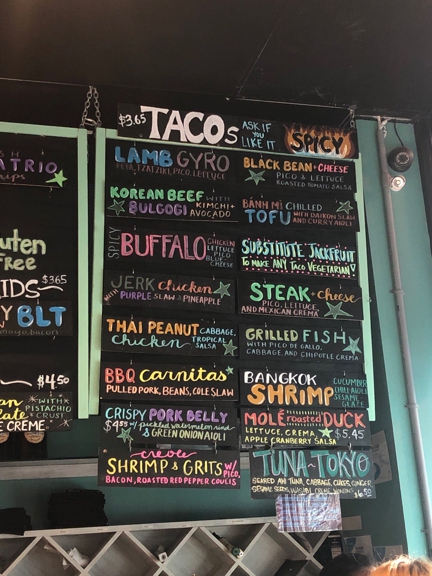 $3.65 TACOs ASK IF YOU LIKE IT SPICY
LAMB GYRO
FETA, TZATZIKI, PICO, LETTUCE
KOREAN BEEF WITH
BULGOGI KIMCHI + AVOCADO
SPICY BUFFALO CHICKEN
LETTUCE
PICO
BLEU
CHEESE
JERK chicken
WITH PURPLE SLAW & PINEAPPLE
THAI PEANUT CABBAGE,
chicken TROPICAL SALSA
BBQ carnitas
PULLED PORK, BEANS, COLE SLAW
CRISPY PORK BELLY
$4.55 w/ pickled watermelon rind
& GREEN ONION AIOLI
creole
SHRIMP & GRITS W/ PICO,
BACON, ROASTED RED PEPPER COULIS
BLACK BEAN + CHEESE
PICO & LETTUCE
ROASTED TOMATO SALSA
BÁNH MÌ CHILLED
TOFU WITH DAIKON SLAW
AND CURRY AIOLI
SUBSTITUTE JACKFRUIT
TO MAKE ANY TACO VEGETARIAN!
STEAK + cheese
PICO, LETTUCE,
AND MEXICAN CREMA
GRILLED FISH
WITH PICO DE GALLO,
CABBAGE, AND CHIPOTLE CREMA
BANGKOK
SHRIMP CUCUMBER
CHILI AIOLI
SESAME
GLAZE
MOLÉ roasted DUCK
LETTUCE, CREMA
APPLE CRANBERRY SALSA $5.45
TUNA~TOKYO
SEARED AHI TUNA, CABBAGE, CUKES, GINGER
SESAME SEEDS, WASABI CREMA, WONTON $6.50
ATRIO
luten
Free
IDS $3.65
Y BLT
$4.50
WITH
PISTACHIO
CRUST
E CREME